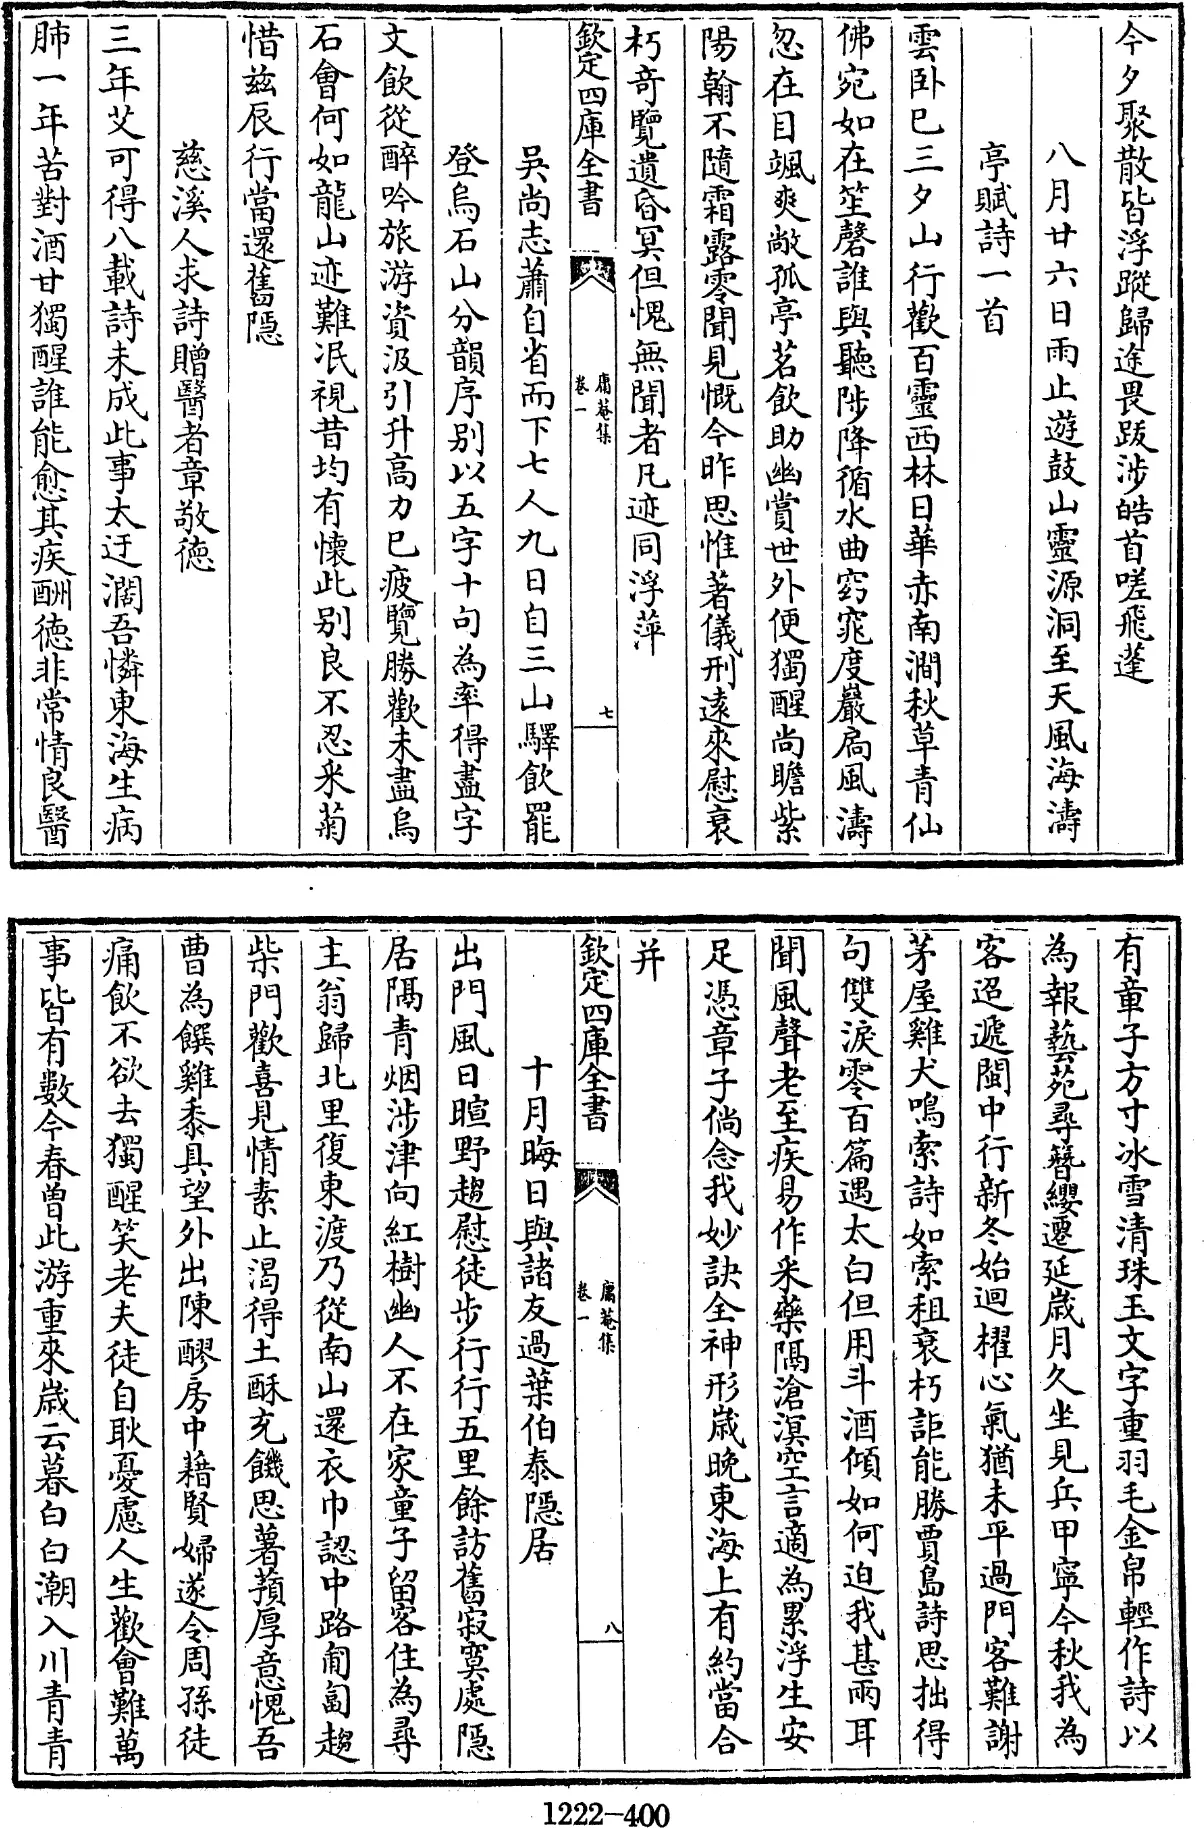 今夕聚散皆浮蹤歸途畏跋涉皓首嗟飛蓬
八月廿六日雨止遊鼓山靈源洞至天風海濤
亭賦詩一首
雲卧已三夕山行歡百靈西林日華赤南澗秋草青仙
佛宛如在笙磬誰與聽陟降循水曲窈窕度巖扃風濤
忽在目颯爽敞孤亭茗飲助幽賞世外便獨醒尚瞻紫
陽翰不隨霜露零聞見慨今昨思惟著儀刑遠來慰衰
朽竒覽遺昏冥但愧無聞者凡迹同浮萍
欽定四庫全書
庸菴集
卷一
七
吳尚志蕭自省而下七人九日自三山驛飲罷
登烏石山分韻序别以五字十句為率得盡字
文飲從醉吟旅游資汲引升高力已疲覽勝歡未盡烏
石會何如龍山迹難泯視昔均有懷此别良不忍采菊
惜兹辰行當還舊隱
慈溪人求詩贈醫者章敬德
三年艾可得八載詩未成此事太迂濶吾憐東海生病
肺一年苦對酒甘獨醒誰能愈其疾酬德非常情良醫
有童子方寸冰雪清珠玉文字重羽毛金帛輕作詩以
為報藝苑尋簪纓遷延歳月久坐見兵甲寧今秋我為
客迢遞閩中行新冬始迴櫂心氣猶未平過門客難謝
茅屋雞犬鳴索詩如索租衰朽詎能勝賈島詩思拙得
句雙淚零百篇遇太白但用斗酒傾如何迫我甚兩耳
聞風聲老至疾易作采藥隔滄溟空言適為累浮生安
足憑章子倘念我妙訣全神形歳晩東海上有約當合
并
欽定四庫全書
庸菴集
卷一
八
十月晦日與諸友過葉伯泰隱居
出門風日暄野趨慰徒步行行五里餘訪舊寂寞處隱
居隔青烟涉津向紅樹幽人不在家童子留客住為尋
主翁歸北里復東渡乃從南山還衣巾認中路匍匐趨
柴門歡喜見情素止渴得土酥充饑思薯蕷厚意愧吾
曹為饌雞黍具望外出陳醪房中藉賢婦遂令周孫徒
痛飲不欲去獨醒笑老夫徒自耿憂慮人生歡會難萬
事皆有數今春曽此游重來歳云暮白白潮入川青青
1222—400